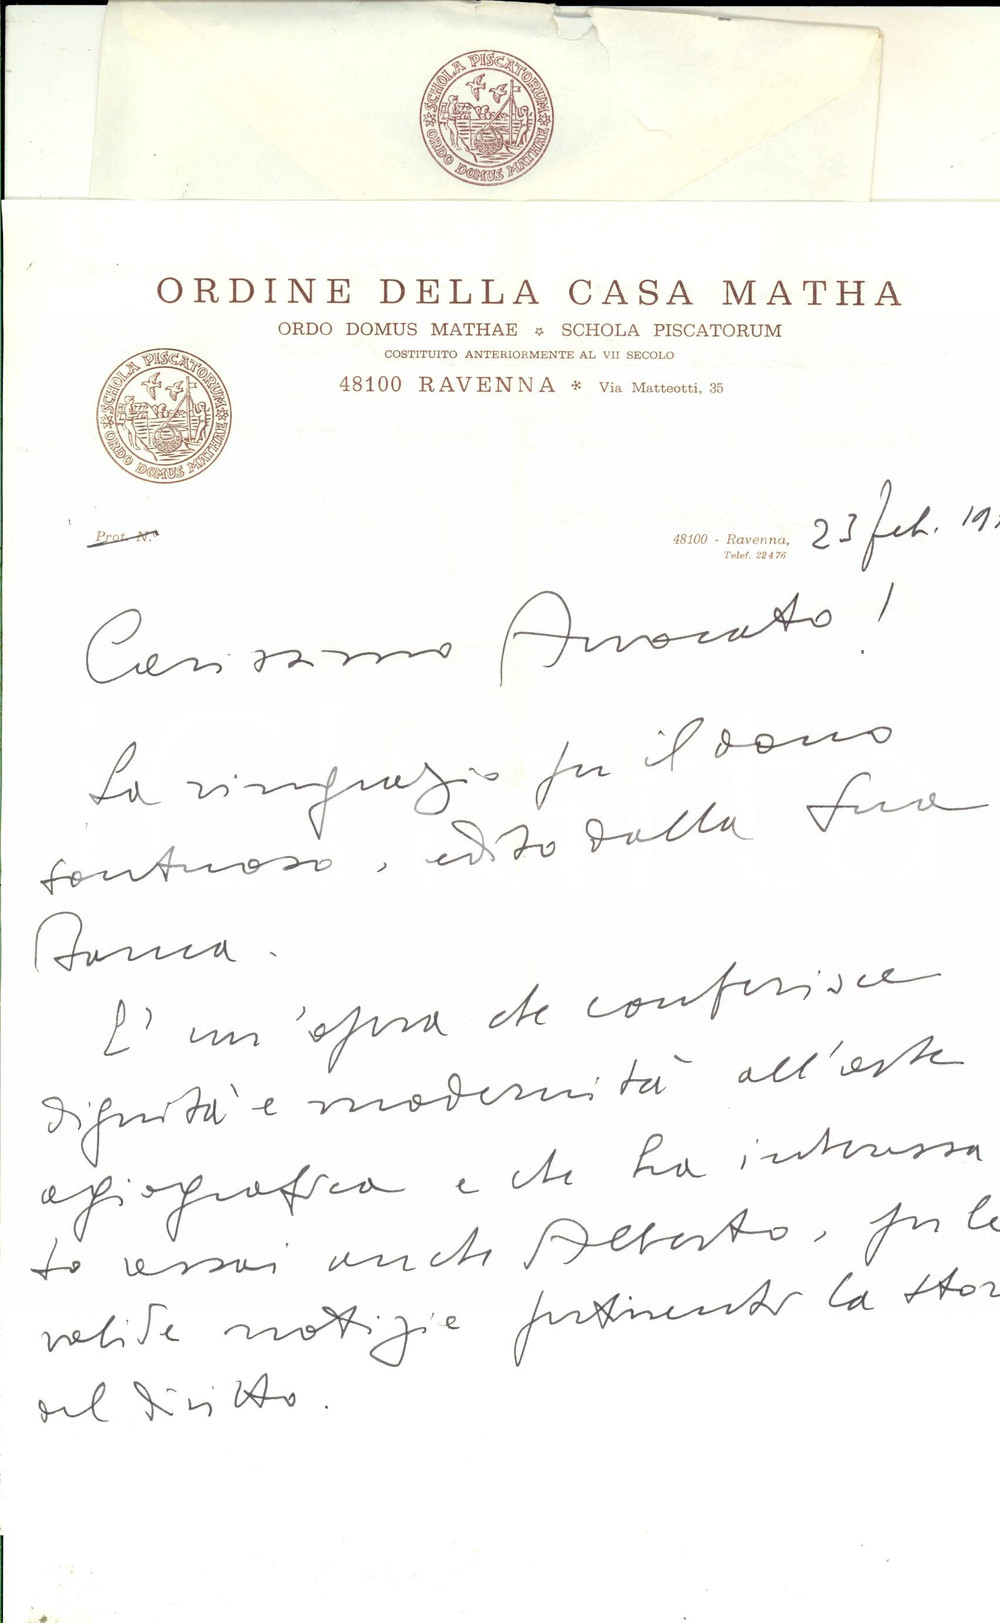 SCHOLA PISCATORUM
ORDO DOMUS MATHAE
ORDINE DELLA CASA MATHA
ORDO DOMUS MATHAE * SCHOLA PISCATORUM
COSTITUITO ANTERIORMENTE AL VII SECOLO
48100 RAVENNA * Via Matteotti, 35
SCHOLA PISCATORUM
ORDO DOMUS MATHAE
Prot. N.°
48100 - Ravenna, 23 feb. 19
Telef. 22476
Carissimo Avvocato!
La ringrazio per il dono
sontuoso, edito dalla Sua
Banca.
E' un'opera che conferisce
dignità e modernità all'arte
agiografica e che ha interessa
to assai anche Alberto, per le
valide notizie pertinenti la stor
del diritto.